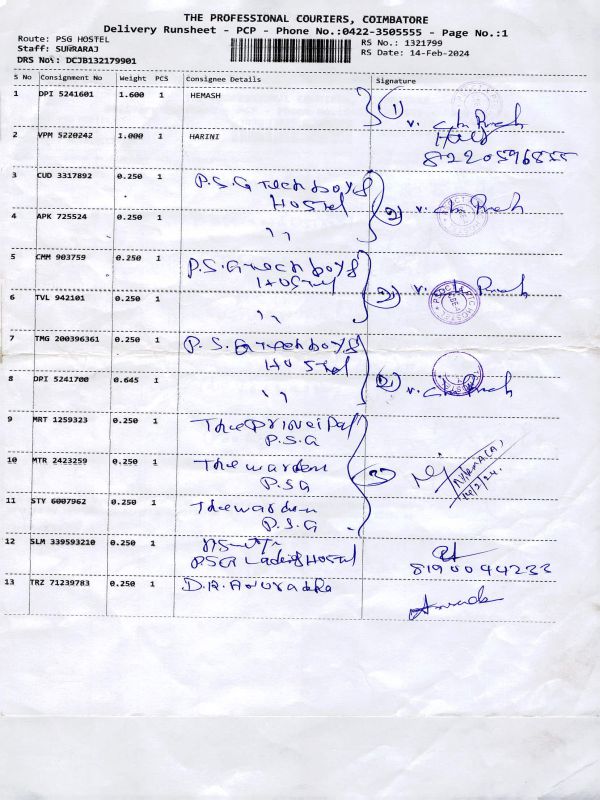 THE PROFESSIONAL COURIERS, COIMBATORE
Delivery Runsheet - PCP - Phone No.:0422-3505555 - Page No.:1
Route: PSG HOSTEL
RS No.: 1321799
Staff: SUNRARAJ
RS Date: 14-Feb-2024
DRS No: DCJB132179901
S No Consignment No Weight PCS Consignee Details Signature
1 DPI 5241601 1.600 1 HEMASH 1)
2 VPM 5220242 1.000 1 HARINI
8220596855
3 CUD 3317892 0.250 1 P.S.G Tech boys
Hostel
4 APK 725524 0.250 1 ,,
5 CMM 903759 0.250 1 P.S.G Tech boys
Hostel
6 TVL 942101 0.250 1 ,,
7 TMG 200396361 0.250 1 P.S.G Tech boys
Hostel
8 DPI 5241700 0.645 1 ,,
9 MRT 1259323 0.250 1 The Principal
P.S.G
10 MTR 2423259 0.250 1 The warden
P.S.G
14/2/24.
11 STY 6007962 0.250 1 The warden
P.S.G
12 SLM 339593210 0.250 1
PSG Ladies Hostel
8190094233
13 TRZ 71239783 0.250 1 D.R. Anuradha